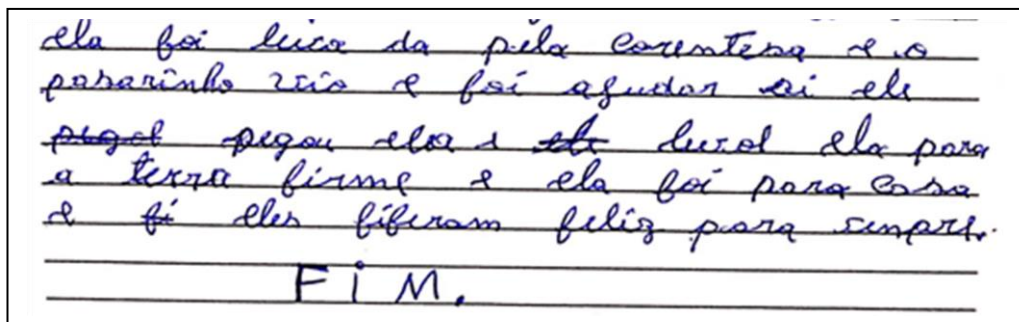 ela foi leva da pela corenteza e o
pasarinho viu e foi ajudar ai ele
pegol pegou ela e ele levol ela para
a terra firme e ela foi para casa
e fi eles fiferam feliz para sempre.
FiM.